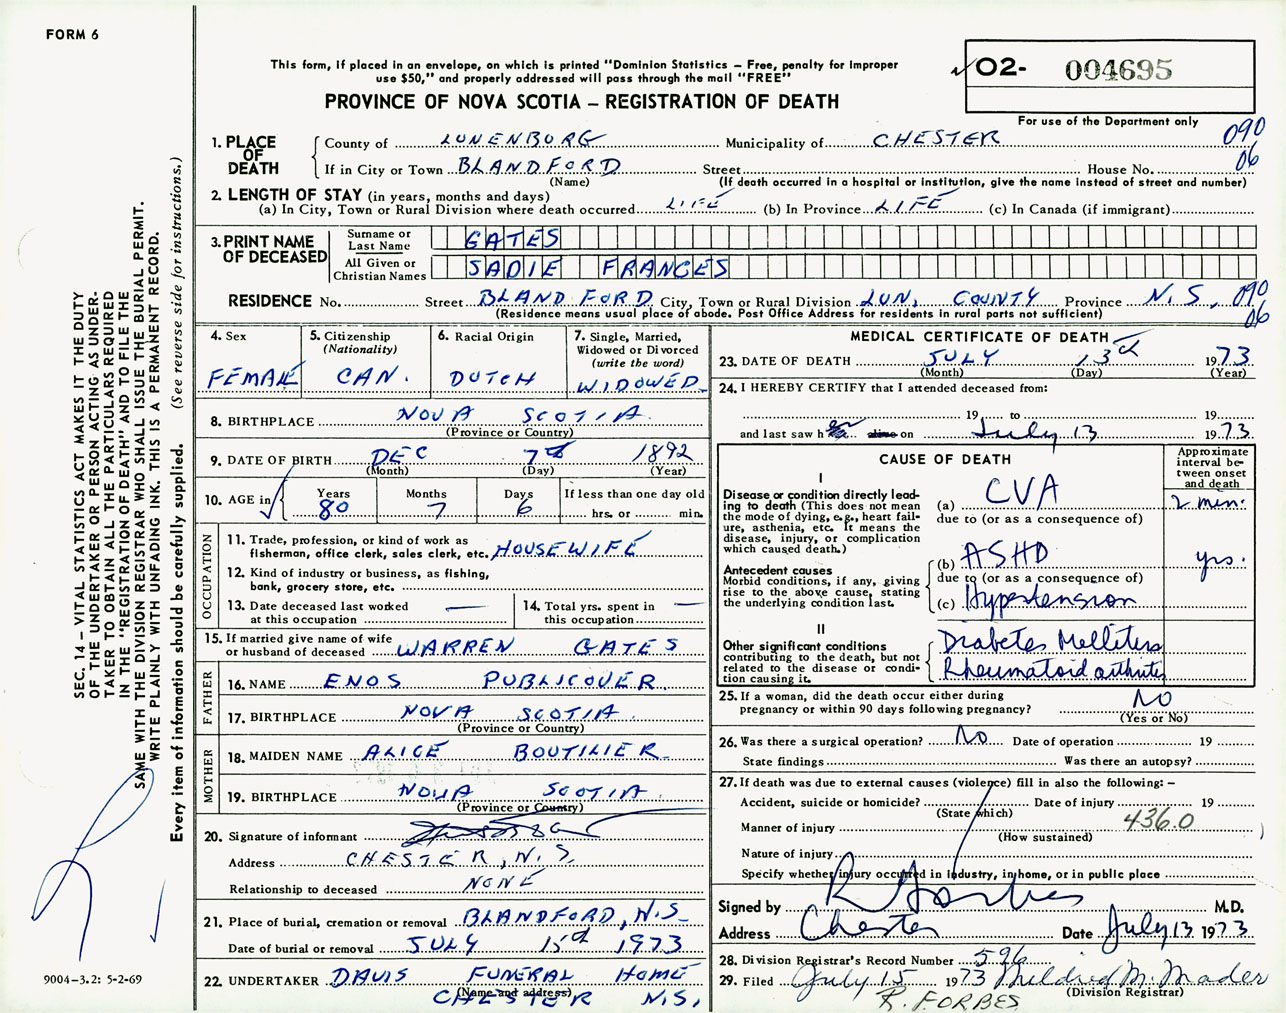 FORM 6
This form, if placed in an envelope, on which is printed "Dominion Statistics – Free, penalty for improper
use $50," and properly addressed will pass through the mail "FREE"
PROVINCE OF NOVA SCOTIA – REGISTRATION OF DEATH
O2- 004695
For use of the Department only
090
06
1. PLACE OF DEATH
County of LUNENBURG Municipality of CHESTER
If in City or Town BLANDFORD Street House No.
(Name) (If death occurred in a hospital or institution, give the name instead of street and number)
2. LENGTH OF STAY (in years, months and days)
(a) In City, Town or Rural Division where death occurred LIFE (b) In Province LIFE (c) In Canada (if immigrant)
3. PRINT NAME OF DECEASED
Surname or Last Name GATES
All Given or Christian Names SADIE FRANCES
RESIDENCE No. Street BLANDFORD City, Town or Rural Division LUN. COUNTY Province N.S, 090
(Residence means usual place of abode. Post Office Address for residents in rural parts not sufficient) 06
4. Sex
FEMALE
5. Citizenship
(Nationality)
CAN.
6. Racial Origin
DUTCH
7. Single, Married,
Widowed or Divorced
(write the word)
WIDOWED
8. BIRTHPLACE NOVA SCOTIA
(Province or Country)
9. DATE OF BIRTH DEC 7th 1892
(Month) (Day) (Year)
10. AGE in
Years Months Days If less than one day old
80 7 6 hrs. or min.
OCCUPATION
11. Trade, profession, or kind of work as
fisherman, office clerk, sales clerk, etc. HOUSEWIFE
12. Kind of industry or business, as fishing,
bank, grocery store, etc.
13. Date deceased last worked —
at this occupation
14. Total yrs. spent in —
this occupation
15. If married give name of wife
or husband of deceased WARREN GATES
FATHER
16. NAME ENOS PUBLICOVER
17. BIRTHPLACE NOVA SCOTIA
(Province or Country)
MOTHER
18. MAIDEN NAME ALICE BOUTILIER
19. BIRTHPLACE NOVA SCOTIA
(Province or Country)
20. Signature of informant
Address CHESTER, N.S.
Relationship to deceased NONE
21. Place of burial, cremation or removal BLANDFORD, N.S.
Date of burial or removal JULY 15 1973
22. UNDERTAKER DAVIS FUNERAL HOME
(Name and address)
CHESTER N.S.
MEDICAL CERTIFICATE OF DEATH
23. DATE OF DEATH JULY 13 1973
(Month) (Day) (Year)
24. I HEREBY CERTIFY that I attended deceased from:
19 to 19
and last saw h alive on July 13 1973
CAUSE OF DEATH
Approximate
interval be-
tween onset
and death
I
Disease or condition directly lead-
ing to death (This does not
mean the mode of dying, e.g., heart fail-
ure, asthenia, etc. It means the
disease, injury, or complication
which caused death.)
(a) CVA 2 min.
due to (or as a consequence of)
Antecedent causes
Morbid conditions, if any, giving
rise to the above cause, stating
the underlying condition last.
(b) ASHD yrs.
due to (or as a consequence of)
(c) Hypertension
II
Other significant conditions
contributing to the death, but not
related to the disease or condi-
tion causing it.
Diabetes Mellitus
Rheumatoid arthritis
25. If a woman, did the death occur either during
pregnancy or within 90 days following pregnancy? NO
(Yes or No)
26. Was there a surgical operation? No Date of operation 19
State findings Was there an autopsy?
27. If death was due to external causes (violence) fill in also the following: –
Accident, suicide or homicide? Date of injury 19
(State which)
Manner of injury 436.0
(How sustained)
Nature of injury
Specify whether injury occurred in industry, in home, or in public place
Signed by R Forbes M.D.
Address Chester Date July 13 1973
28. Division Registrar's Record Number 596
29. Filed July 15 1973 Mildred M. Mader
(Division Registrar)
R. FORBES
SEC. 14 – VITAL STATISTICS ACT MAKES IT THE DUTY
OF THE UNDERTAKER OR PERSON ACTING AS UNDER-
TAKER TO OBTAIN ALL THE PARTICULARS REQUIRED
IN THE "REGISTRATION OF DEATH" AND TO FILE THE
SAME WITH THE DIVISION REGISTRAR WHO SHALL ISSUE THE BURIAL PERMIT.
WRITE PLAINLY WITH UNFADING INK. THIS IS A PERMANENT RECORD.
Every item of information should be carefully supplied. (See reverse side for instructions.)
9004-3.2: 5-2-69